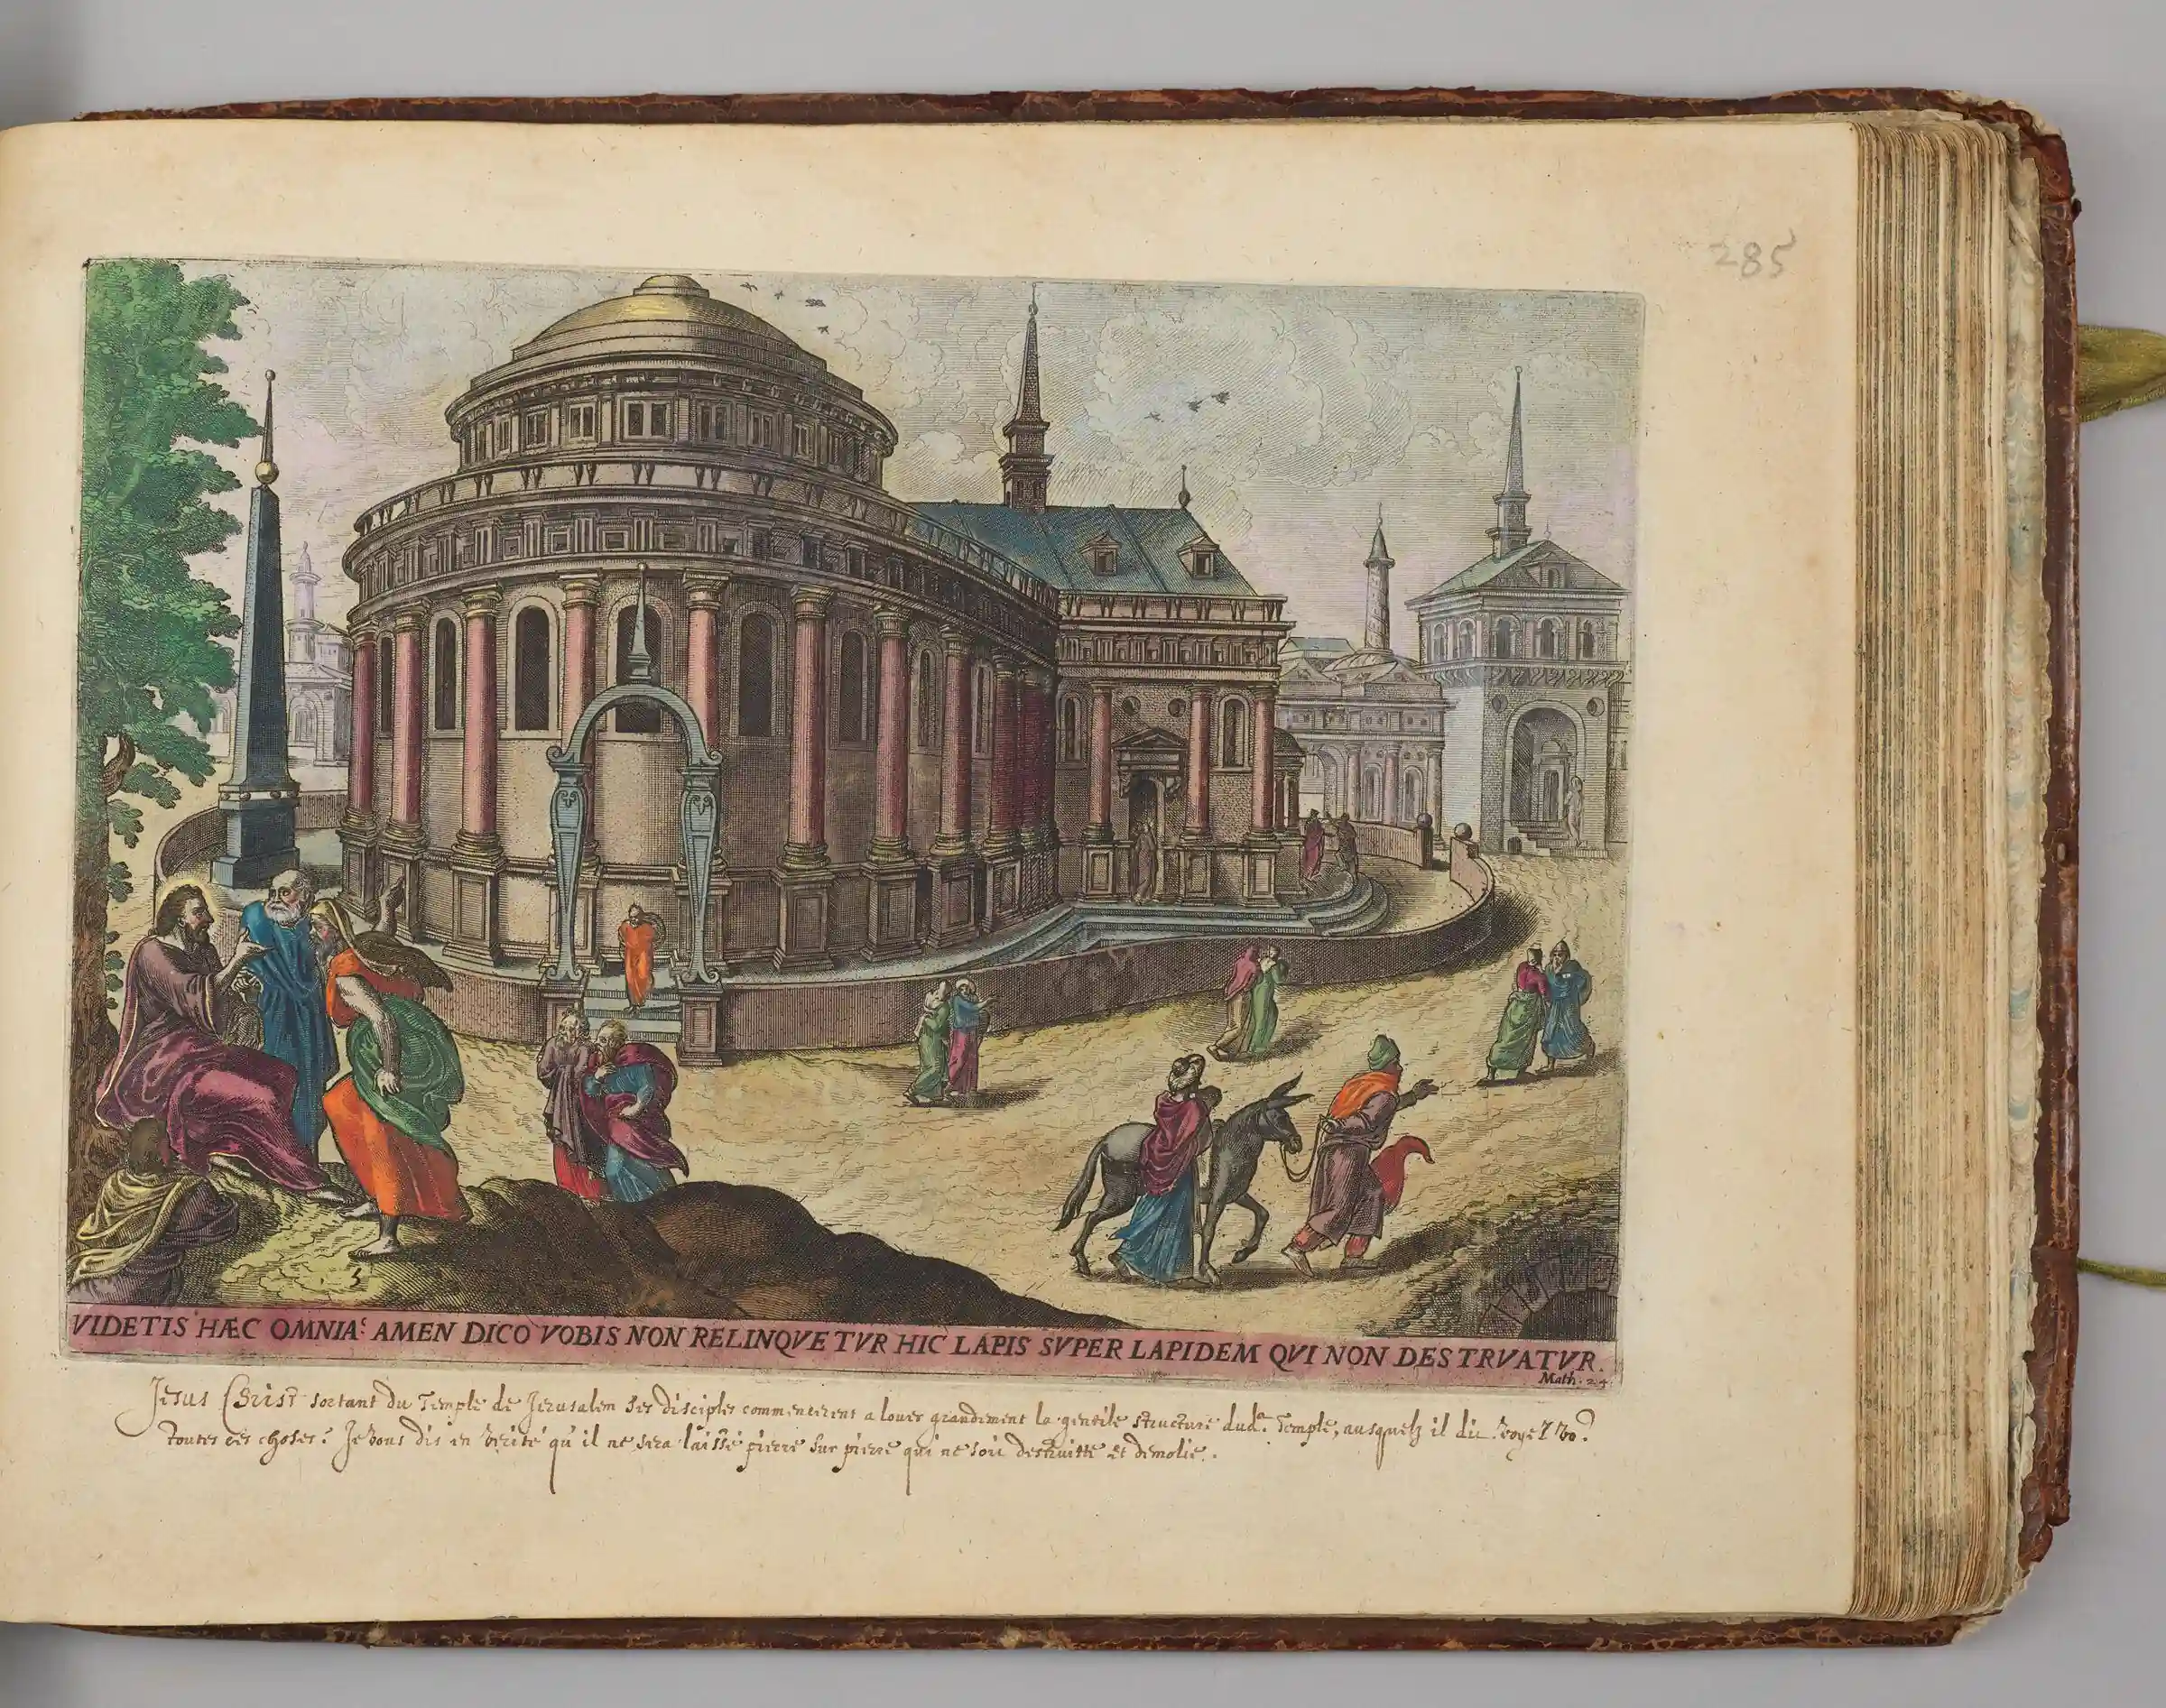 285
3
VIDETIS HÆC OMNIA? AMEN DICO VOBIS NON RELINQVETVR HIC LAPIS SVPER LAPIDEM QVI NON DESTRVATVR.
Math. 24.
Jesus Christ sortant du Temple de Jerusalem ses disciples commencerent a louer grandement la gentile structure dud.ᵗ Temple, ausquelz il dit. voyez vo.ˢ
toutes ces choses? Je vous dis en verite qu'il ne sera laisse pierre sur pierre qui ne soit destruitte et demolie.